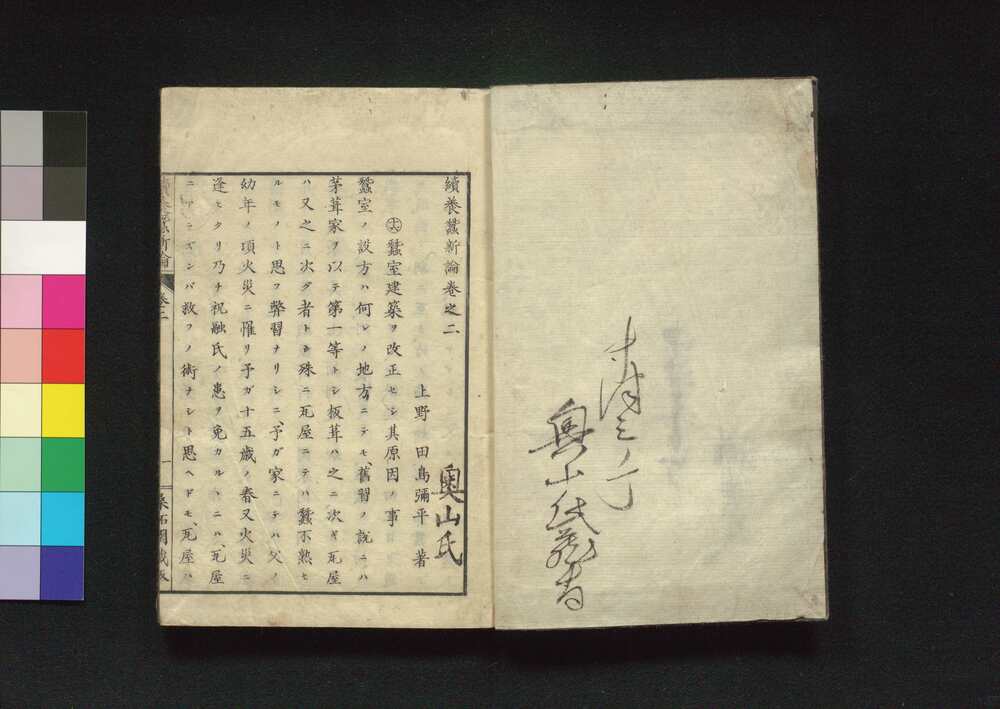 奥山氏蔵書
續養蠶新論卷之二
上野 田島彌平 著
奥山氏
㊅蠶室建築ヲ改正セシ其原因ノ事
蠶室ノ設方ハ何レノ地方ニテモ舊習ノ説ニハ
茅葺家ヲ以テ第一等トシ板葺ハ之ニ次ギ瓦屋
ハ又之ニ次グ者トシ殊ニ瓦屋ニテハ蠶不熟セ
ルモノト思フ弊習ナリシニ、予ガ家ニテハ父ノ
幼年ノ頃火災ニ罹リ予ガ十五歳ノ春又火災ニ
逢ヒタリ乃チ祝融氏ノ患ヲ免カルヽニハ、瓦屋
ニアラズンバ救フノ術ナシト思ヘドモ、瓦屋ハ